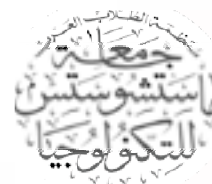 منظمة الطلاب العرب
جامعة
ماستشوستس
للتكنولوجيا